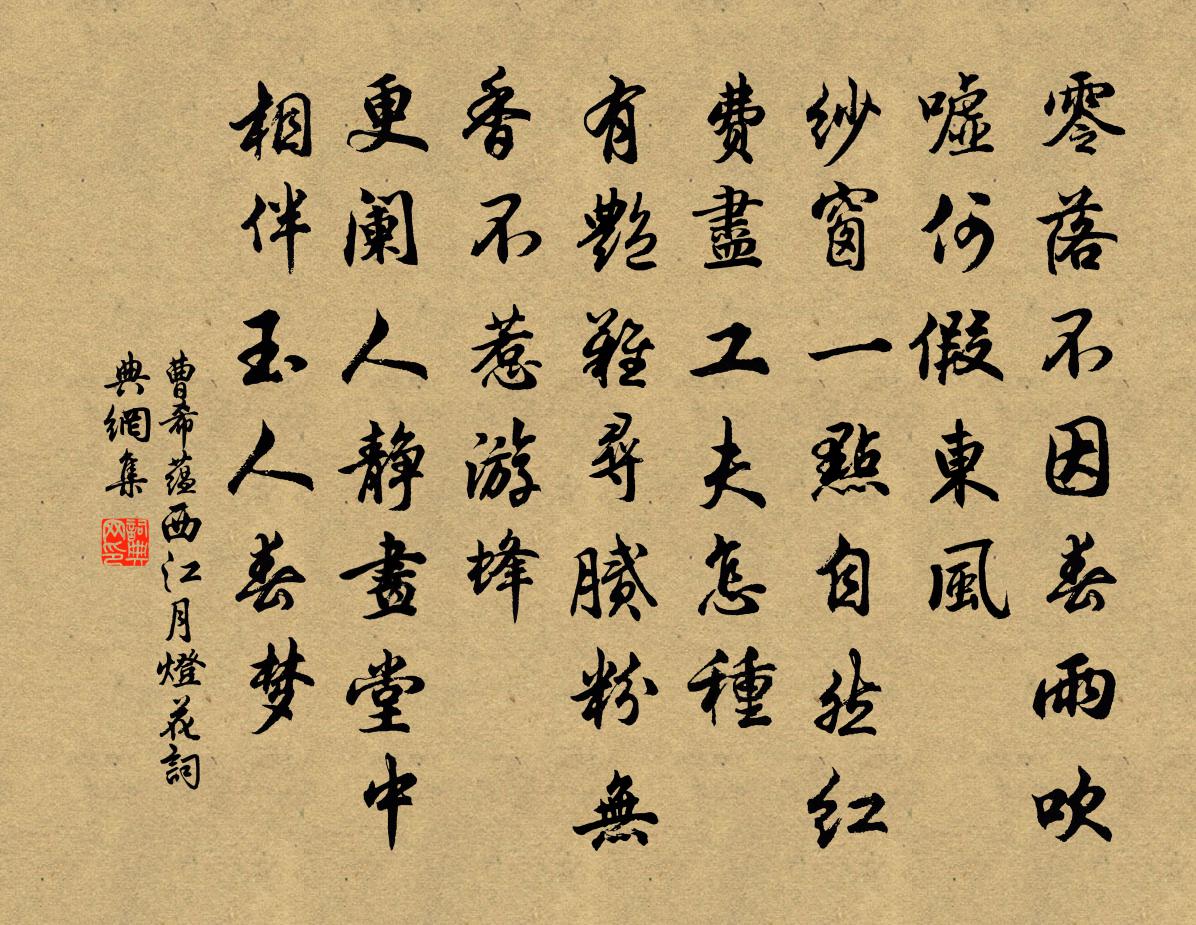 零落不因春雨吹
噓何假東風
紗窗一點自然红
費盡工夫怎種
有艷難尋膩粉無
香不惹游蜂
更阑人静畫堂中
相伴玉人春梦
曹希蕴西江月燈花詞
典網集
詞典网印